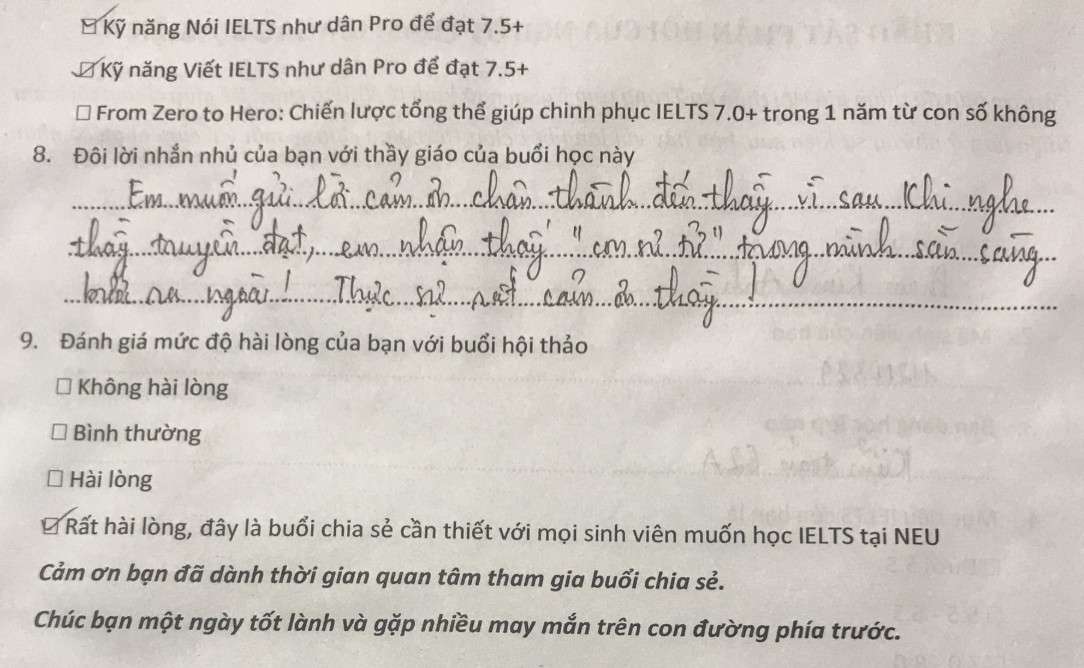 ☑ Kỹ năng Nói IELTS như dân Pro để đạt 7.5+
☑ Kỹ năng Viết IELTS như dân Pro để đạt 7.5+
☐ From Zero to Hero: Chiến lược tổng thể giúp chinh phục IELTS 7.0+ trong 1 năm từ con số không
8. Đôi lời nhắn nhủ của bạn với thầy giáo của buổi học này
Em muốn gửi lời cảm ơn chân thành đến thầy vì sau khi nghe
thầy truyền đạt, em nhận thấy "con sư tử" trong mình sẵn sàng
bước ra ngoài! Thực sự rất cảm ơn thầy!
9. Đánh giá mức độ hài lòng của bạn với buổi hội thảo
☐ Không hài lòng
☐ Bình thường
☐ Hài lòng
☑ Rất hài lòng, đây là buổi chia sẻ cần thiết với mọi sinh viên muốn học IELTS tại NEU
Cảm ơn bạn đã dành thời gian quan tâm tham gia buổi chia sẻ.
Chúc bạn một ngày tốt lành và gặp nhiều may mắn trên con đường phía trước.